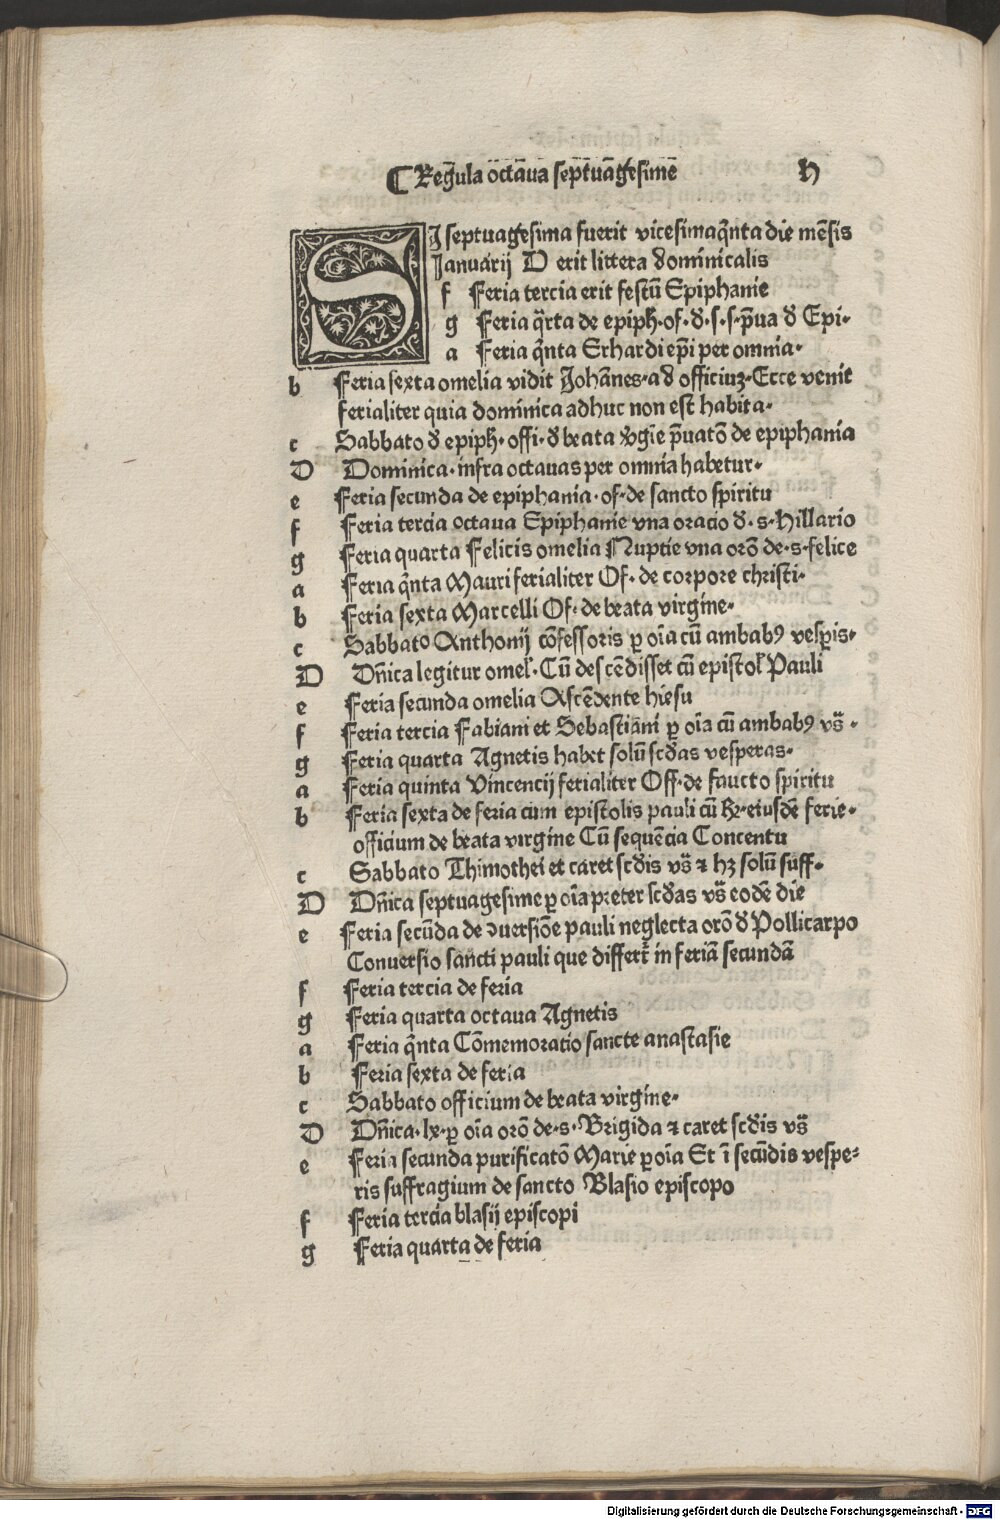 ⁋ Regula octaua septuagesime H
SI septuagesima fuerit vicesimaq̄nta die mēsis
Januarij D erit littera dominicalis
f Feria tercia erit festū Epiphanie
g Feria q̄rta de epiph. of. d. s. s. p̄ua d Epi.
a Feria q̄nta Erhardi ep̄i per omnia.
b Feria sexta omelia vidit Johānes. ad officiuʒ. Ecce venit
ferialiter quia dominica adhuc non est habita.
c Sabbato d epiph. offi. d beata v̄gīe p̄uatō de epiphania
D Dominica. infra octauas per omnia habetur.
e Feria secunda de epiphania. of. de sancto spiritu
f Feria tercia octaua Epiphanie vna oracio d. s. Hillario
g Feria quarta Felicis omelia Nuptie vna orō de. s. felice
a Feria q̄nta Mauri ferialiter Of. de corpore christi.
b Feria sexta Marcelli Of. de beata virgine.
c Sabbato Anthonij cōfessoris ꝑ oīa cū ambabꝰ vesꝑis.
D Dn̄ica legitur omel̄. Cū descēdisset cū epistol̄ Pauli
e Feria secunda omelia Ascēdente hiesu
f Feria tercia Fabiani et Sebastiani ꝑ oīa cū ambabꝰ vs̄.
g Feria quarta Agnetis habet solū scd̄as vesperas.
a Feria quinta Vincencij ferialiter Off. de sancto spiritu
b Feria sexta de feria cum epistolis pauli cū hʒ. eiusdē ferie.
officium de beata virgine Cū sequēcia Concentu
c Sabbato Thimothei et caret scd̄is vs̄ ⁊ hʒ solū suff.
D Dn̄ica septuagesime ꝑ oīa preter scd̄as vs̄ eodē die
e Feria secūda de ↄuersiōe pauli neglecta orō d Pollicarpo
Conuersio sancti pauli que differt̄ in feriā secundā
f Feria tercia de feria
g Feria quarta octaua Agnetis
a Feria q̄nta Cōmemoratio sancte anastasie
b Feria sexta de feria
c Sabbato officium de beata virgine.
D Dn̄ica. lx. ꝑ oīa orō de. s. Brigida ⁊ caret scd̄is vs̄
e Feria secunda purificatō Marie ꝑ oīa Et ī secūdis vespe⸗
ris suffragium de sancto Blasio episcopo
f Feria tercia blasij episcopi
g Feria quarta de feria
Digitalisierung gefördert durch die Deutsche Forschungsgemeinschaft - DFG